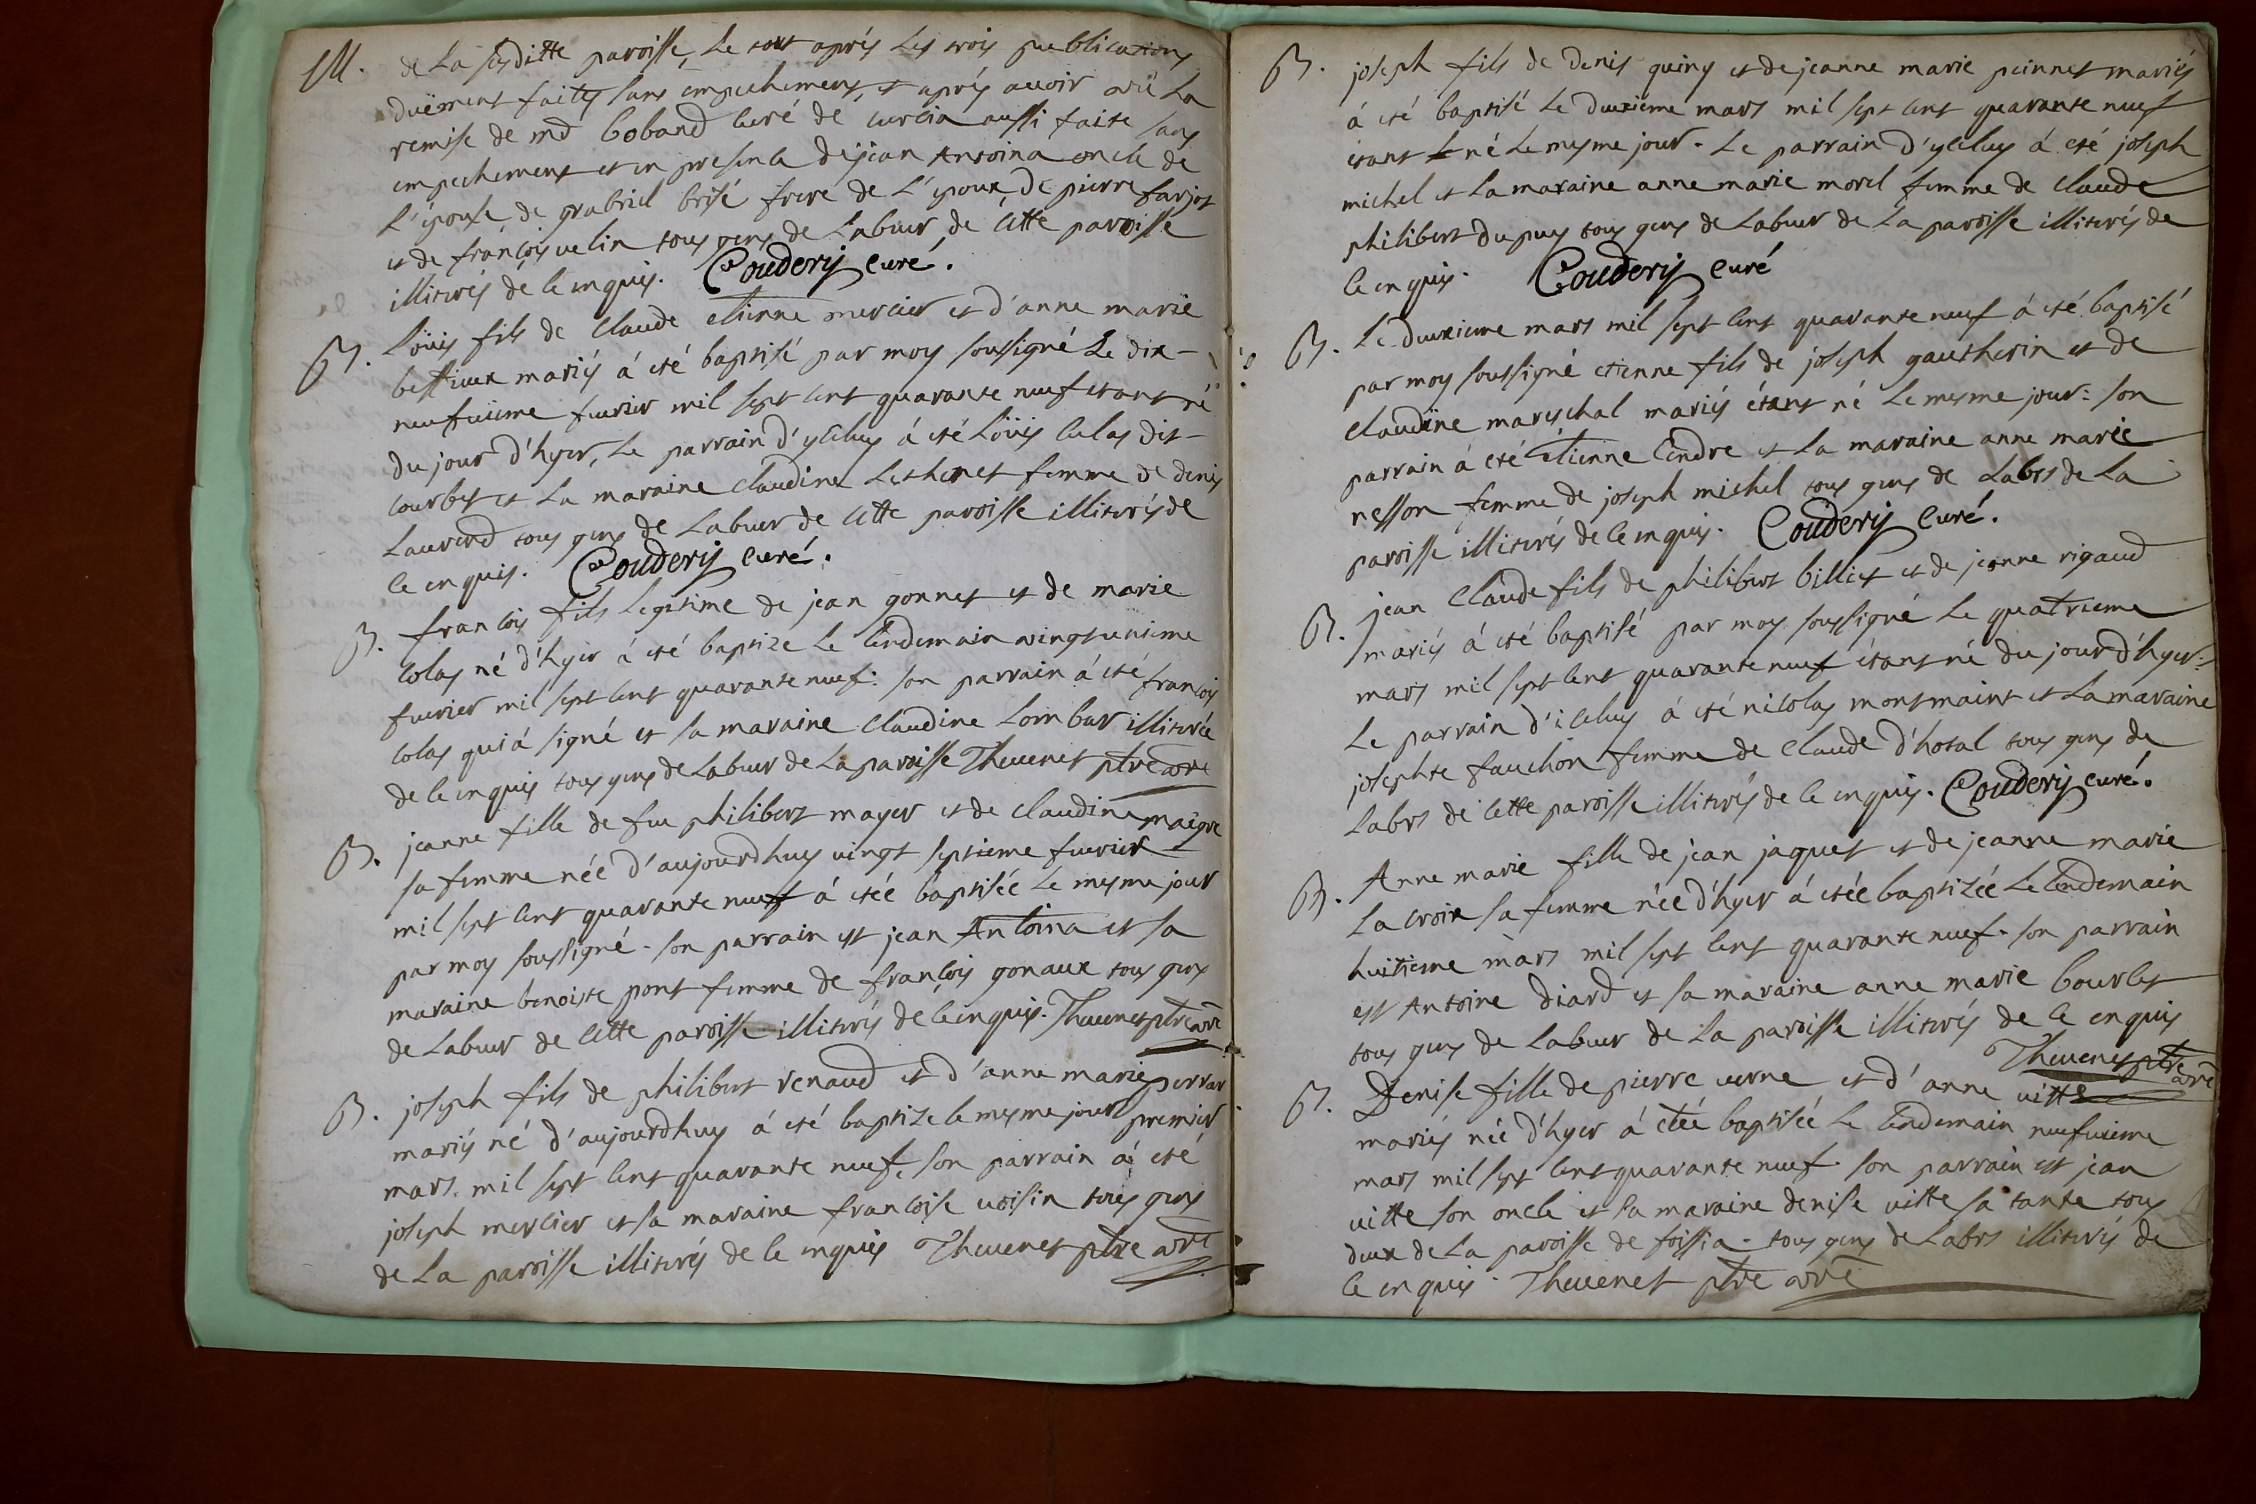 M. de La susditte paroisse, Le tout aprés Les trois publications
duëment faites sans empechement et aprés avoir vü La
remise de md boband curé de curcia aussi faite sans
empechement et en presence de jean Antoina oncle de
L'épouse de grabriel brisé frere de L'époux, de pierre farjot
et de françois velin tous gens de Labeur de cette paroisse
illiterés de ce enquis. Couderis curé.
B. Loüis fils de Claude etienne mercier et d'anne marie
bessieux mariés á eté baptisé par moy soussigné Le dix-
neufvieme fevrier mil sept cent quarante neuf etant né
du jour d'hyer, Le parrain d'yceluy á eté Loüis culas dit-
courbet et La maraine claudine Lethenet femme de denis
Laurend tous gens de Labeur de cette paroisse illiterés de
ce enquis. Couderis curé.
B. francois fils Legitime de jean gonnet et de marie
colas né d'hyer á eté baptize Le Lendemain vingtunieme
fevrier mil sept cent quarante neuf. son parrain á eté francois
colas qui á signé et sa maraine Claudine Lombar illiterée
de ce enquis tous gens de Labeur de La paroisse Thevenet ptre vre
B. jeanne fille de feu philibert mayer et de claudine maigre
sa femme née d'aujourdhuy vingt septieme fevrier
mil sept cent quarante neuf á etée baptisée Le mesme jour
par moy soussigné. son parrain est jean Antoina et sa
maraine benoiste pont femme de françois gonaux tous gens
de Labeur de cette paroisse illiterés de ce enquis. Thevenet ptre vre
B. joseph fils de philibert renaud et d'anne marie perrar
mariés né d'aujourdhuy á eté baptize le mesme jour premier
mars mil sept cent quarante neuf. son parrain á eté
joseph mercier et sa maraine francoise voisin tous gens
de La paroisse illiterés de ce enquis Thevenet ptre vre
B. joseph fils de denis quiny et de jeanne marie peinnet mariés
á eté baptisé Le deuxiéme mars mil sept cent quarante neuf
etant né Le mesme jour. Le parrain d'yceluy á eté joseph
michel et La maraine anne marie morel femme de Claude
philibert dupuy tous gens de Labeur de La paroisse illiterés de
ce enquis. Couderis curé
B. Le deuxieme mars mil sept cent quarante neuf á eté baptisé
par moy soussigné etienne fils de joseph gautherin et de
claudine mareschal mariés étant né Le mesme jour: son
parrain á eté etienne Cendre et La maraine anne marie
nesson femme de joseph michel tous gens de Labrs de La
paroisse illiterés de ce enquis. Couderis Curé.
B. jean Claude fils de philibert billiet et de jeanne rigaud
mariés á eté baptisé par moy soussigné Le quatrieme
mars mil sept cent quarante neuf étant né du jour d'hyer:
Le parrain d'iceluy á eté nicolas montmaint et La maraine
josephte fauchon femme de Claude d'hotal tous gens de
Labrs de cette paroisse illiterés de ce enquis. Couderis curé.
B. Anne marie fille de jean jaquet et de jeanne marie
La croix sa femme née d'hyer á etée baptizée Le Lendemain
huitieme mars mil sept cent quarante neuf. son parrain
est Antoine diard et sa maraine anne marie bourlet
tous gens de Labeur de La paroisse illiterés de ce enquis
Thevenet ptre vre
B. Denise fille de pierre verne et d'anne vitte
mariés née d'hyer á eteé baptiséé Le Lendemain neufvieme
mars mil sept cent quarante neuf. son parrain est jean
vitte son oncle et sa maraine denise vitte sa tante tous
deux de La paroisse de foissia. tous gens de Labrs illiterés de
ce enquis. Thevenet ptre vre